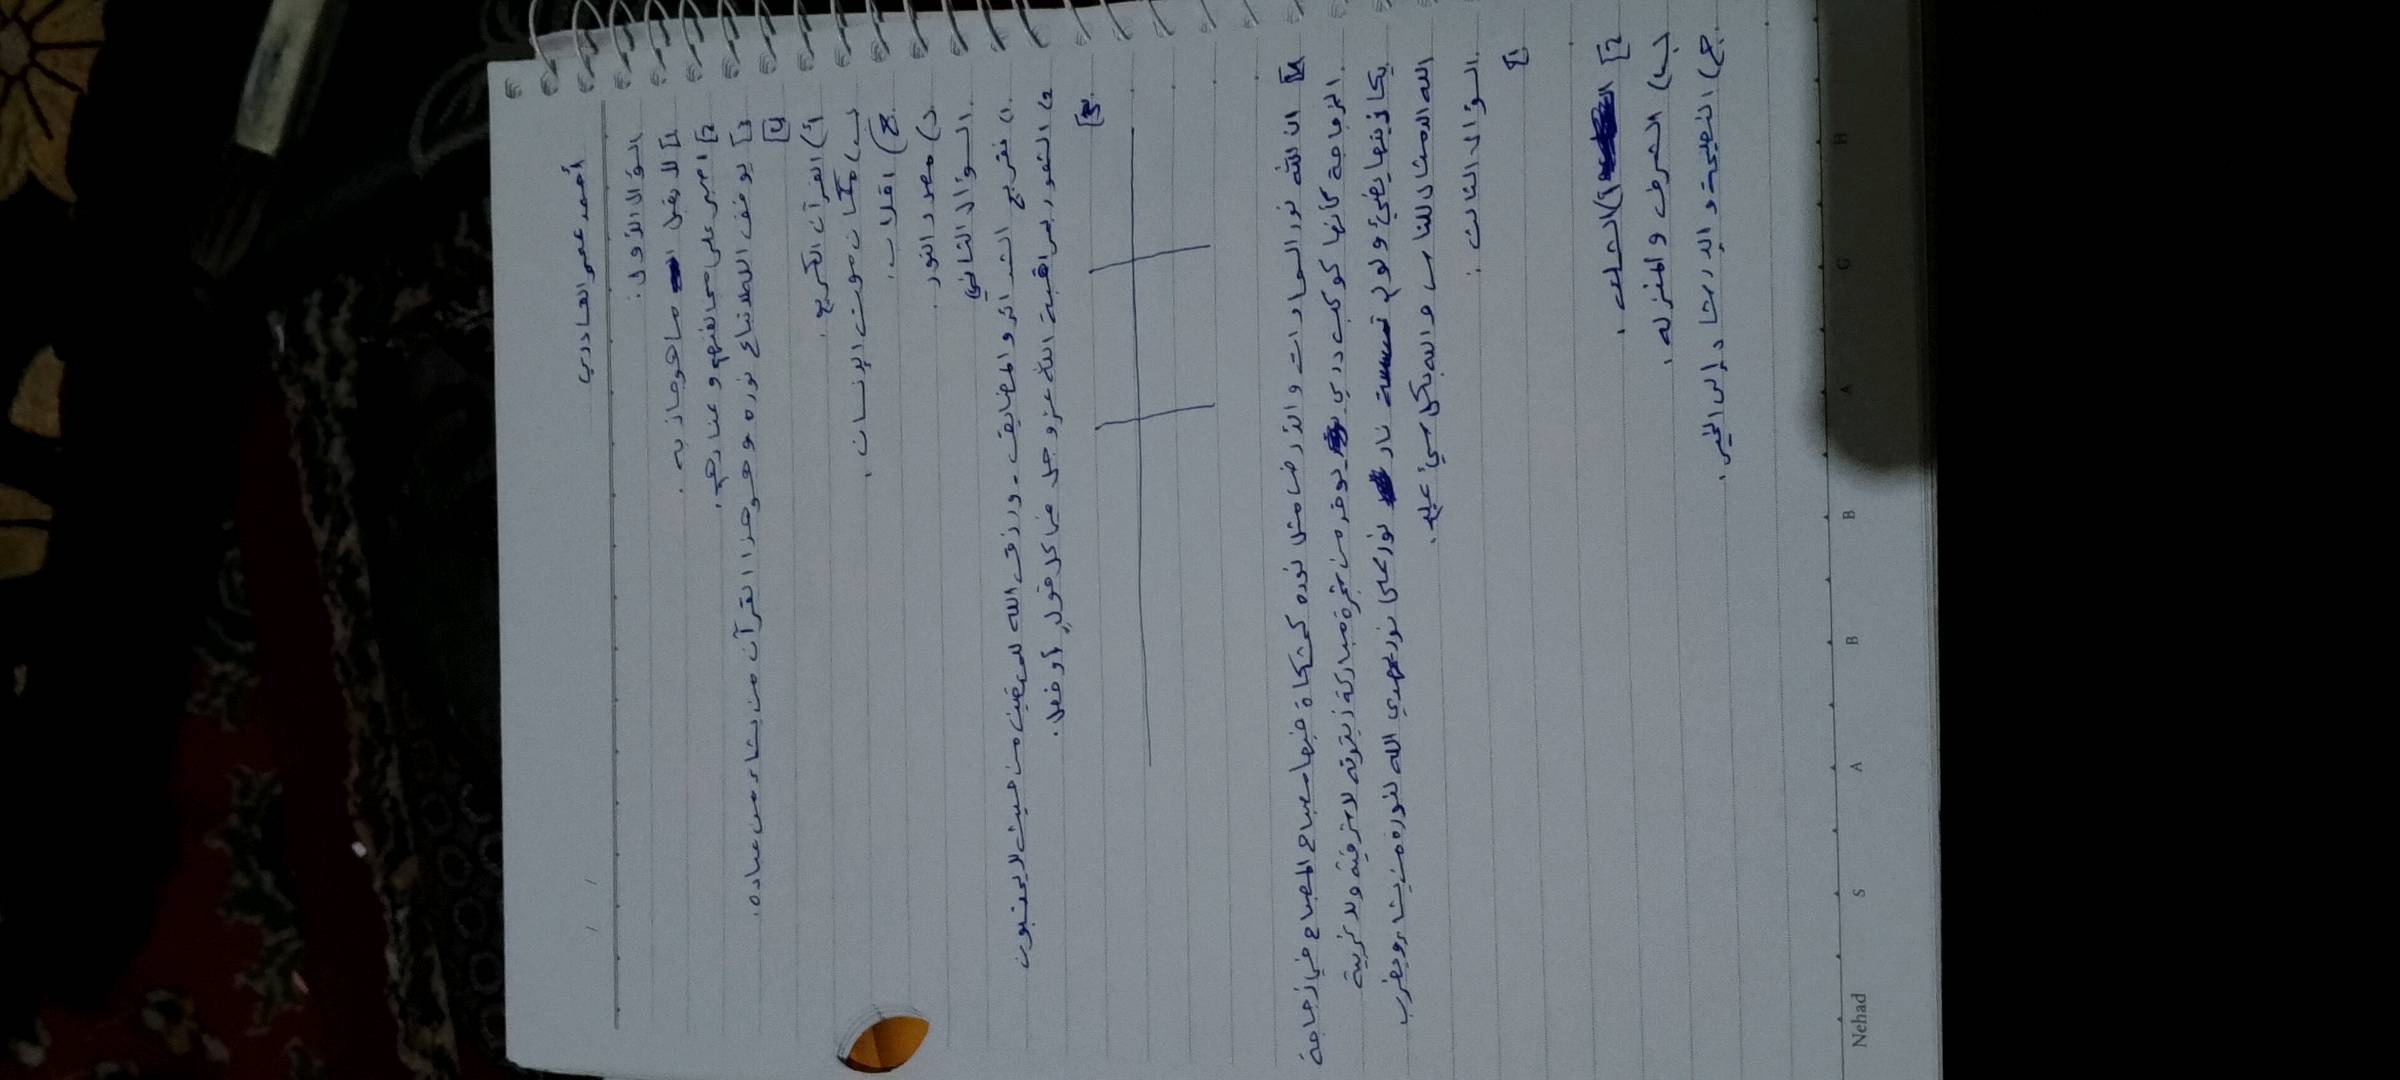 أحمد عمر العادري
السؤال الأول:
1] لا يقبل ما هو جاز به.
2] اصبر على مخالفتهم وعنادهم.
3] يوفق الله لاتباع نوره وهو هذا القرآن من يشاء من عباده.
4]
أ) القرآن الكريم.
ب) مكان موت الإنسان.
ج) اقلاب.
د) مصدر النور.
السؤال الثاني
1) تفريج الشدائر والمضايق - ورزق الله للعبد من حيث لا يحتسبون
2) الشعور بمراقبة الله عز وجل في كل قول أو فعل.
3]
4] الله نور السماوات والأرض مثل نوره كمشكاة فيها مصباح المصباح في زجاجة
الزجاجة كأنها كوكب دري يوقد من شجرة مباركة زيتونة لا شرقية ولا غربية
يكاد زيتها يضيء ولو لم تمسسه نار نور على نور يهدي الله لنوره من يشاء ويضرب
الله الامثال للناس والله بكل شيء عليم.
السؤال الثالث:
1]
2] أ)
ب) الشرف والمنزله.
ج) النصيحة و الارشاد إلى الخير.
Nehad A S A B B A G H